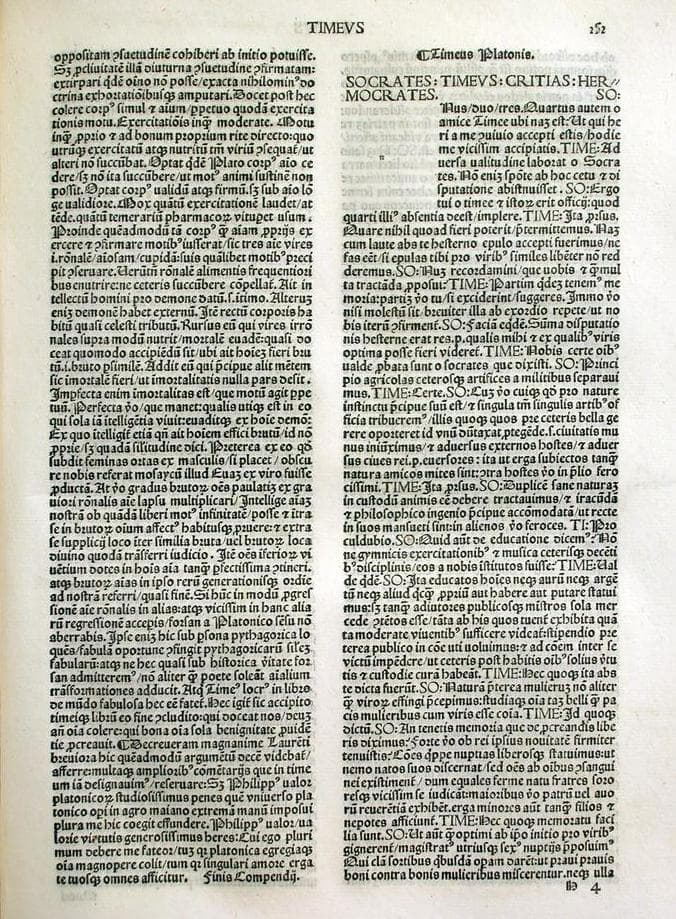 TIMEVS
252
oppositam ꝯsuetudinē cohiberi ab initio potuisse.
Sʒ ꝓcliuitatē illā diuturna ꝯsuetudine ꝯfirmatam:
extirpari qdē oīno nō posse/exacta nihilominꝰ do
ctrina exhortatiōibusqꝫ amputari. Docet post hec
colere corpꝰ simul ⁊ aīum/ꝑpetuo quodā exercita
tionis motu. Exercitatiōis inqꝫ moderate. Motu
inqꝫ ꝓprio ⁊ ad bonum proprium rite directo: quo
utrūqꝫ exercitatū atqꝫ nutritū tm̄ viriū ꝯsequat̄/ut
alteri nō succūbat. Optat qdē Plato corpꝰ aīo ce
dere/sʒ nō ita succūbere/ut motꝰ animi sustinē non
possit. Optat corpꝰ ualidū atqꝫ firmū. sʒ sub aīo lō
ge ualidiore. Mox quātū exercitationē laudet/at
tēde. quātū temerariū pharmacoꝝ vitupet usum.
Proinde quēadmodū tā corpꝰ q̄ʒ aīam ꝓprijs ex
ercere ⁊ ꝯfirmare motibꝰ iusserat/sic tres aīe vires
i. rōnalē/aīosam/cupidā: suis qualibet motibꝰ preci
pit ꝯseruare. Uerūtn̄ rōnalē alimentis frequentiori
bus enutrire: ne ceteris succūbere cōpellat̄. Ait in
tellectū homini pro demone datū. s. itimo. Alterū
eniʒ demonē habet externū. Itē rectū corporis ha
bitū quasi celesti tributū. Rursus eū qui vires irrō
nales supra modū nutrit/mortalē euadē: quasi do
ceat quomodo accipiēdū sit/ubi ait hoīeʒ fieri bru
tū. i. bruto ꝓsimilē. Addit eū qui p̄cipue alit mētem
sic imortalē fieri/ut imortalitatis nulla pars desit.
Imꝑfecta enim imortalitas est/que motū agit ꝑpe
tuū. Perfecta v̄o/que manet: qualis utiqꝫ est in eo
qui sola iā itelligētia viuit: euaditqꝫ ex hoīe demō:
Ex quo itelligit̄ etiā qn̄ ait hoīem effici brutū/id nō
ꝓprie/sʒ quadā sīlitudine dici. Preterea ex eo qd̄
subdit feminas ortas ex masculis/si placet / obscu
re nobis referat mosaycū illud Euaʒ ex viro fuisse
ꝓductā. At v̄o gradus brutoꝝ oēs paulatiʒ ex gra
uiori rōnalis aīe lapsu multiplicari/Intellige aīaʒ
nostrā ob quādā liberi motꝰ infinitatē/posse ⁊ itra
se in brutoꝝ oium affectꝰ habitusqꝫ ꝓruere: ⁊ extra
se supplicij loco iter similia bruta/uel brutoꝝ loca
diuino quodā trāsferri iudicio. Itē oēs iferioꝝ vi
uētium dotes in hoīs aīa tanqꝫ ꝑfectissima ꝯtineri.
atqꝫ brutoꝝ aīas in ipso rerū generationisqꝫ ordīe
ad nostrā referri/quasi finē. Si hūc in modū ꝓgres
sionē aīe rōnalis in alias: atqꝫ vicissim in hanc alia
rū regressionē acceꝑis/forsan a Platonico sēsu nō
aberrabis. Ipse eniʒ hic sub ꝑsona pythagorica lo
quēs/fabulā oportune ꝯfingit pythagoricarū siles
fabularū: atqꝫ ne hec quasi sub historica v̄itate for
san admitterem̄/nō aliter q̄ʒ poete soleāt aīalium
trāsformationes adducit. Atqꝫ Timeꝰ locrꝰ in libro
de mūdo fabulosa hec eē fatet̄. Hec igit̄ sic accipito
timeiqꝫ librū eo fine ꝯcludito: qui doceat nos/deuʒ
an̄ oīa colere: qui bona oīa sola benignitate ꝓuidē
tie ꝓcreauit. ¶Decreueram magnanime Laurēti
breuiora hic quēadmodū argumētū decet videbāt̄/
afferre: multaqꝫ ampliorib̄ comētarijs que in time
um iā designauimꝰ/reseruare: Sʒ Philippꝰ ualoꝝ
platonicoꝝ studiosissimus penes quē vniuerso pla
tonico opi in agro maiano extremā manū imposui
plura me hic coegit effundere. Philippꝰ ualor/ua
lorie virtutis generosissimus heres: Cui ego pluri
mum debere me fateor/tuʒ qꝛ platonica egregiaqꝫ
oīa magnopere colit/tum qꝛ singulari amore erga
te tuosqꝫ omnes afficitur. Finis Compendij.
¶Timeus Platonis.
SOCRATES: TIMEVS: CRITIAS: HER//
MOCRATES. SO:
Nus/duo/tres. Quartus autem o
amice Timee ubi naʒ est: Ut qui he
ri a me ꝯuiuio accepti estis/hodie
me vicissim accipiatis. TIME: Ad
versa ualitudine laborat o Socra
tes. Nō eniʒ spōte ab hoc cetu ⁊ di
sputatione abstinuisset. SO: Ergo
tui o timee ⁊ istoꝝ erit officij: quod
quarti illiꝰ absentia deest/implere. TIME: Ita ꝓrsus.
Quare nihil quoad fieri poterit/p̄termittemus. Naʒ
cum laute abs te hesterno epulo accepti fuerimus/ne
fas eēt/si epulas tibi pro viribꝰ similes libēter nō red
deremus. SO: Nuʒ recordamini/que uobis ⁊ q̄ʒ mul
ta tractāda ꝓposui: TIME: Partim qdēʒ tenemꝰ me
moria: partiʒ v̄o tu/si exciderint/suggeres. Immo v̄o
nisi molestū sit/breuiter illa ab exordio repete/ut no
bis iterū ꝯfirment̄. SO: Faciā eqdē. Sūma disputatio
nis hesterne erat res. p. qualis mihi ⁊ ex qualibꝰ viris
optima posse fieri videret̄. TIME: Nobis certe oibꝰ
ualde ꝓbata sunt o socrates que dixisti. SO: Princi
pio agricolas ceterosqꝫ artifices a militibus separaui
mus. TIME: Certe. SO: Cuʒ v̄o cuiqꝫ qd̄ pro nature
instinctu p̄cipue suū est/⁊ singula tm̄ singulis artibꝰ of
ficia tribuerem̄/illis quoqꝫ quos pre ceteris bella ge
rere oporteret id vnū dūtaxat. ꝓtegēde. s. ciuitatis mu
nus iniūximus/⁊ aduersus externos hostes/⁊ aduer
sus ciues rei. p. euersores: ita ut erga subiectos tanqꝫ
natura amicos mites sint: ꝯtra hostes v̄o in p̄lio fero
cissimi. TIME: Ita ꝓrsus. SO: Duplicē sane naturaʒ
in custodū animis eē debere tractauimus/⁊ iracūdā
⁊ philosophico ingenio p̄cipue accōmodatā/ut recte
in suos mansueti sint: in alienos v̄o feroces. TI: Pro
culdubio. SO: Quid aūt de educatione dicem̄? Nō
ne gymnicis exercitationibꝰ ⁊ musica ceterisqꝫ decēti
bꝰ disciplinis/eos a nobis īstitutos fuisse: TIME: Ual
de qdē. SO: Ita educatos hoīes neqꝫ aurū neqꝫ argē
tū neqꝫ aliud qcqʒ ꝓpriū aut habere aut putare statui
mus: sʒ tanqꝫ adiutores publicosqꝫ mīstros sola mer
cede ꝯtētos esse/tāta ab his quos tuent̄ exhibita quā
ta moderate viuentibꝰ sufficere videat̄: stipendio pre
terea publico in cōe uti uoluimus: ⁊ ad cōem inter se
victū impēdere/ut ceteris post habitis oibꝰ solius v̄tu
tis ⁊ custodie curā habeāt. TIME: Hec quoqꝫ ita abs
te dicta fuerūt. SO: Naturā p̄terea mulierū nō aliter
q̄ʒ viroꝝ effingi p̄cepimus: studiaqꝫ oīa taʒ belli q̄ʒ pa
cis mulieribus cum viris esse cōia. TIME: Id quoqꝫ
dictū. SO: An tenetis memoria que de ꝓcreandis libe
ris diximus? Forte v̄o ob rei ipsius nouitatē firmiter
tenuistis: Cōes qppe nuptas liberosqꝫ statuimus: ut
nemo natos suos discernat/sed oēs ab oibus ꝯsangui
nei existiment̄/dum equales ferme natu fratres soro
resqꝫ vicissim se iudicāt: maioribus v̄o patrū vel auo
rū reuerētiā exhibēt. erga minores aūt tanqꝫ filios ⁊
nepotes afficiunt̄. TIME: Hec quoqꝫ memoratu facil
lia sunt. SO: Ut aūt qʒ optimi ab ip̄o initio pro viribꝰ
gignerent̄/magistratꝰ utriusqꝫ sexꝰ nuptijs p̄posuimꝰ
Qui clā sortibus qbusdā opam darēt: ut praui prauis
boni contra bonis mulieribus miscerentur. neqꝫ ulla
H 4